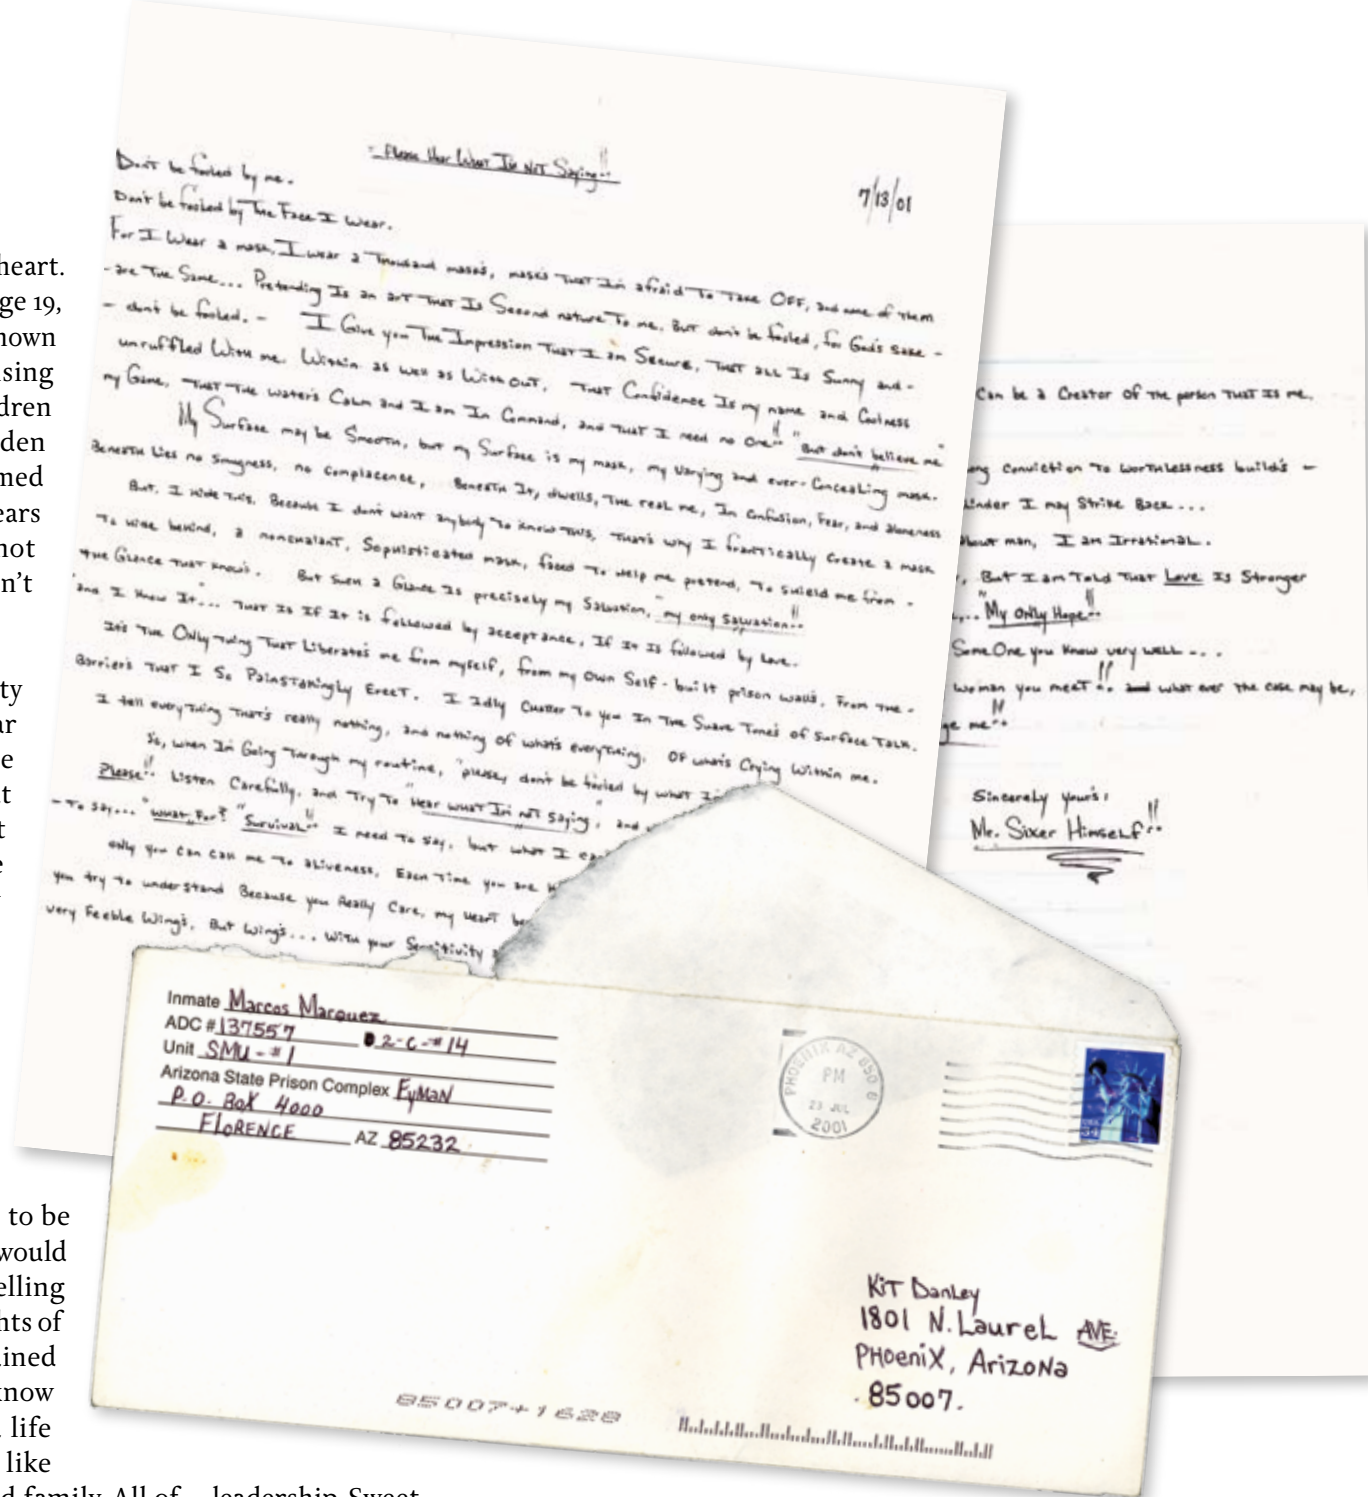 heart.
ge 19,
nown
sing
dren
den
med
ears
not
n't
ty
ar
e
t
t
e
to be
would
elling
hts of
ained
know
life
like
d family. All of
leadership. Sweet
- Please Hear What I'm Not Saying!!
7/13/01
Don't be fooled by me.
Don't be fooled by The Face I wear.
For I Wear a mask, I wear a Thousand mask's, mask's That I'm afraid To Take OFF, and none of them
- are The Same... Pretending Is an art That Is Second nature To me, But don't be fooled, for God's sake -
- don't be fooled. - I Give you The Impression That I am Secure, That all Is Sunny and -
unruffled With me. Within as well as Without, That Confidence Is my name and Coolness
my Game, That The water's Calm and I am In Command, and That I need no One!! "But don't believe me"
My Surface may be Smooth, but my Surface is my mask, my Varying and ever-Concealing mask.
Beneath Lies no smugness, no complacence, Beneath It, dwells, The real me, In Confusion, Fear, and aloneness
But, I Hide This, Because I don't want anybody To Know This, That's why I frantically Create a mask
To Hide behind, a nonchalant, Sophisticated mask, faced To Help me pretend, To Shield me from -
the Glance That Know's. But Such a Glance Is precisely my Salvation, "my only Salvation!!
and I Know It... That Is If It is followed by acceptance, If It Is followed by Love.
It's The Only Thing That Liberates me from myself, from my Own Self-built prison walls, From The -
Barrier's That I So Painstakingly Erect. I Idly Chatter To you In The Suave Tone's of Surface Talk.
I tell everything That's really nothing, and nothing of what's everything, Of what's Crying Within me.
So, when I'm Going Through my routine, "please, don't be fooled by what I'm
Please!! Listen Carefully, and Try To "Hear what I'm not Saying", and
- To Say... "What For? "Survival!! I need To Say, but what I can
only you can call me To aliveness, Each Time you are
you try to understand Because you Really Care, my Heart
very Feeble Wing's, But Wing's... With your Sensitivity
Can be a Creator Of The person That Is me.
Conviction To worthlessness build's -
I may Strike Back...
about man, I am Irrational.
, But I am Told That Love Is Stronger
... "My Only Hope!!
Some One you Know very well...
woman you meet!! and what ever the case may be,
me!!
Sincerely yours,
Mr. Sixer Himself!!
Inmate Marcos Marquez
ADC # 137557 2-C-#14
Unit SMU-#1
Arizona State Prison Complex EyMaN
P.O. BOX 4000
FLORENCE AZ 85232
PHOENIX AZ 850
PM
23 JUL
2001
34
KiT DanLey
1801 N. LaureL AVE.
PHoeniX, ArizoNa
85007.
85007+1628